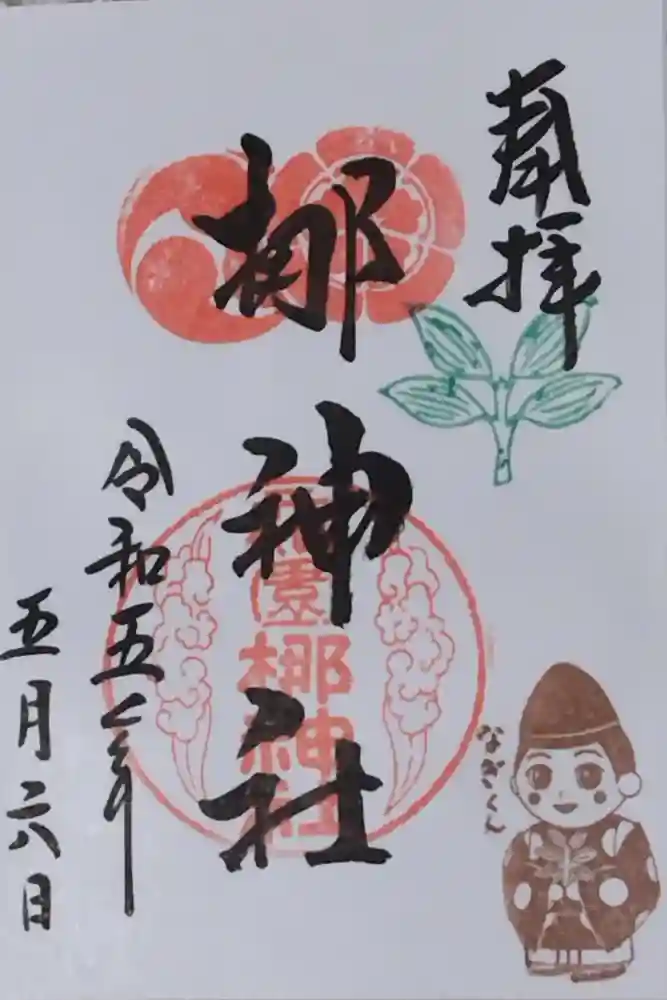 奉拝
梛神社
元祇園
梛神社
令和五年
五月六日
なぎくん